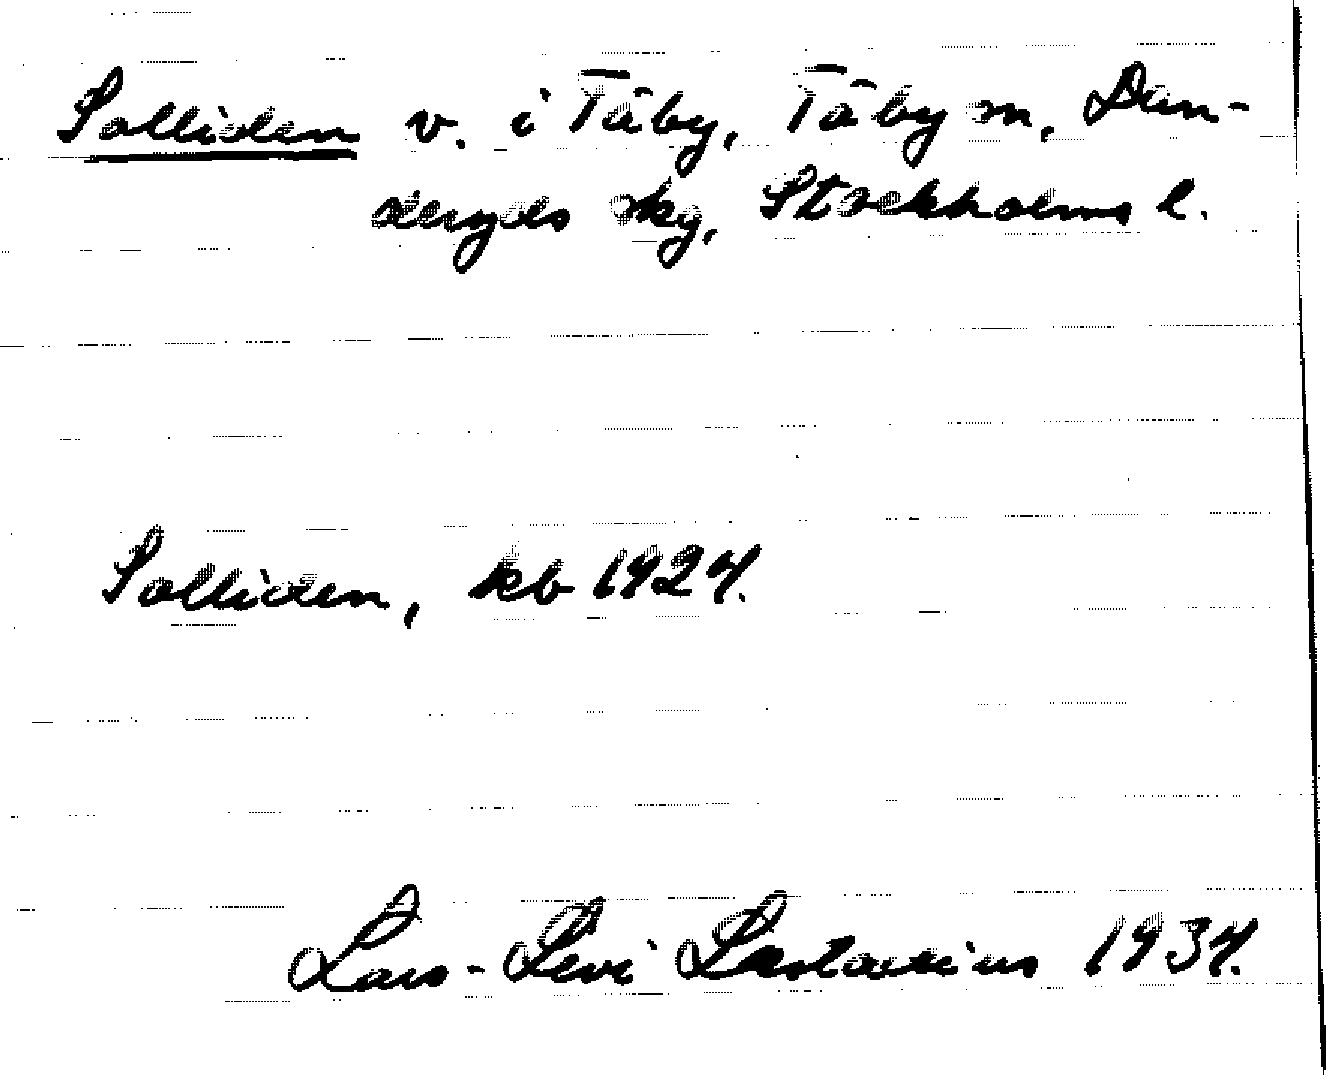 Solliden v. i Täby, Täby sn, Dan-
deryds skg, Stockholms l.
Solliden, kb 1927.
Lars-Levi Læstadius 1937.